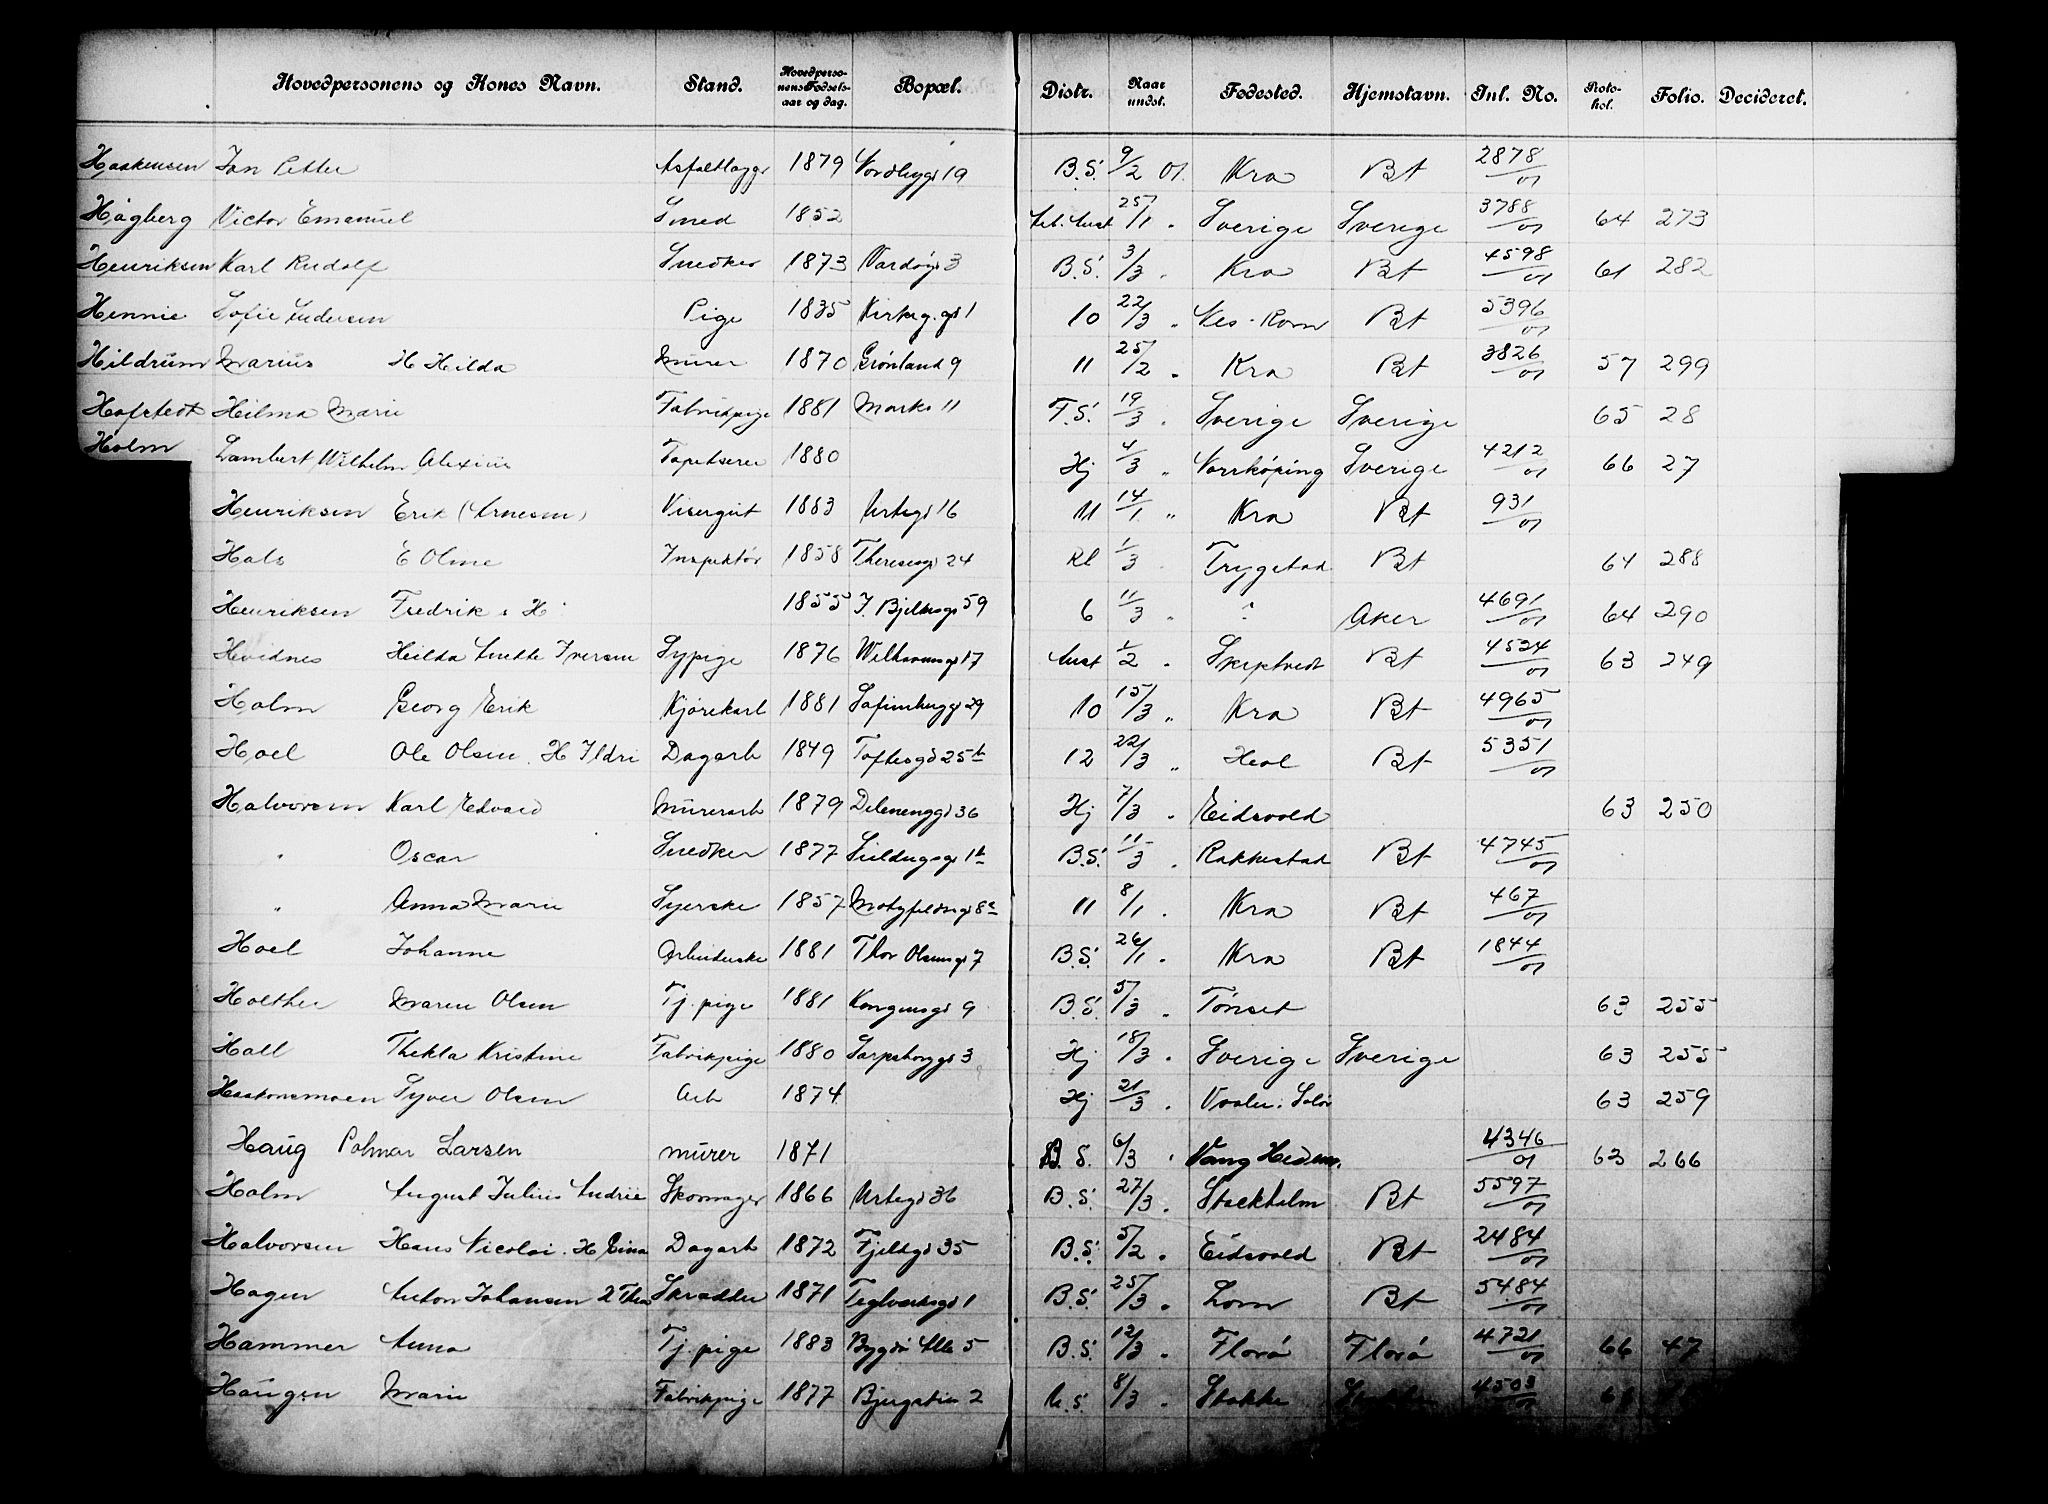 Hovedpersonens og Kones Navn. Stand. Hovedperso-nens Fødsels-aar og dag. Bopæl. Distr. Naar undst. Fødested. Hjemstavn. Inl. No. Proto-kol. Folio. Decideret.
Haakensen Jan Petter Asfaltlægger 1879 Nordbygd 19 B.S. 9/2 01. Kra Bt 2878/01
Hägberg Victor Emanuel Smed 1852 25/1 " Sverige Sverige 3788/01 64 273
Henriksen Karl Rudolf Snedker 1873 Vardøgd 3 B.S. 3/3 " Kra Bt 4598/01 61 282
Hennie Sofie Andersen Pige 1835 Kirkeg.gd 1 10 22/3 " Nes - Rom Bt 5396/01
Hildrum Marius H Hilda Murer 1870 Grønland 9 11 25/2 " Kra Bt 3826/01 57 299
Hafstedt Hilma Marie Fabrikpige 1881 Markv 11 F.S. 19/3 " Sverige Sverige 65 28
Holm Lambert Wilhelm Alexius Tapetserer 1880 Hj 4/3 " Norrköping Sverige 4212/01 66 27
Henriksen Erik (Arnesen) Visergut 1883 Urtegd 16 11 14/1 " Kra Bt 931/01
Hals E Oline Inspektør 1858 Theresesgd 24 Rl 1/3 " Trygstad Bt 64 288
Henriksen Fredrik & H 1855 J. Bjelkesgd 59 6 11/3 " ? Aker 4691/01 64 290
Hvidnes Hilda Anette Iversen Sypige 1876 17 Anst 1/2 " Skiptvedt Bt 4524/01 63 249
Holm Georg Erik Kjørekarl 1881 Sofienberggd 29 10 15/3 " Kra Bt 4965/01
Hoel Ole Olsen. H Ildri Dagarb 1849 Toftesgd 25b 12 22/3 " Heol Bt 5351/01
Halvorsen Karl Edvard Murerarb 1879 Delenenggd 36 Hj 7/3 " Eidsvold 63 250
" Oscar Snedker 1877 1b B.S. 11/3 " Rakkestad Bt 4745/01
" Anna Marie Syerske 1857 Motzfeldtsgd 8c 11 8/1 " Kra Bt 467/01
Hoel Johanne Arbeiderske 1881 Thor Olsensgd 7 B.S. 26/1 " Kra Bt 1844/01
Holther Maren Olsen Tj. pige 1881 Kongensgd 9 B.S. 5/3 " Tønset 63 255
Hall Thekla Kristine Fabrikpige 1880 Sarpsborggd 3 Hj 18/3 " Sverige Sverige 63 255
Haakonsmoen Syver Olsen Arb 1874 Hj 21/3 " Vaaler i Solør 63 259
Haug Palmar Larsen murer 1871 B.S. 6/3 " Vang Hedem. 4346/01 63 266
Holm August Julius Andrie Skomager 1866 Urtegd 36 B.S. 27/3 " Stockholm Bt 5597/01
Halvorsen Hans Nicolai. H Dagarb 1872 Fjeldgd 35 B.S. 5/2 " Eidsvold Bt 2484/01
Hagen Anton Johansen 2 Thea Skrædder 1871 Teglverksgd 1 B.S. 25/3 " Lom Bt 5484/01
Hammer Anna Tj. pige 1883 Bygdø Alle 5 B.S. 12/3 " Florø Florø 4721/01 66 47
Haugen Marie Fabrikpige 1877 Bjergstien 2 8/3 " Stokke 4503/01